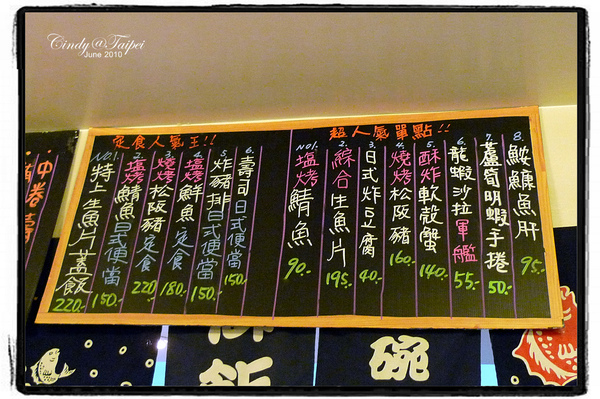 Cindy@Taipei
June 2010
定食人氣王!!
NO.1. 特上生魚片蓋飯 220.-
2. 塩烤鯖魚日式便當 150.-
3. 燒烤松阪豬定食 220.-
4. 塩烤鮮魚定食 180.-
5. 炸豬排日式便當 150.-
6. 壽司日式便當 150.-
超人氣單點!!
NO1. 塩烤鯖魚 90.-
2. 綜合生魚片 195.-
3. 日式炸豆腐 40.-
4. 燒烤松阪豬 160.-
5. 酥炸軟殼蟹 140.-
6. 龍蝦沙拉軍艦 55.-
7. 蘆筍明蝦手捲 50.-
8. 鮟鱇魚肝 95.-
中卷壽
飯
碗